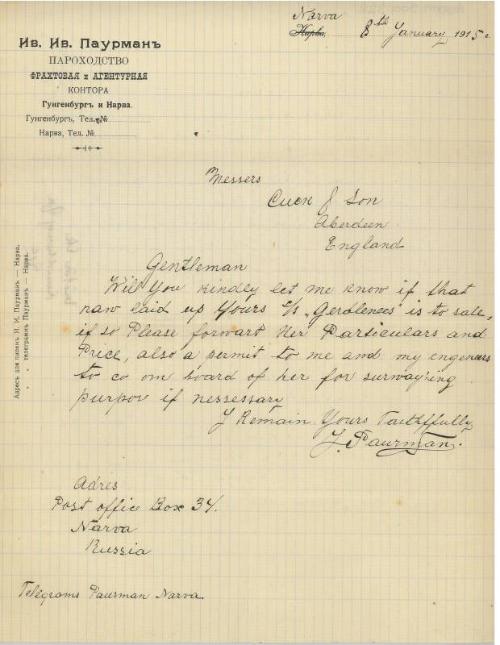 Ив. Ив. Паурманъ
ПАРОХОДСТВО
ФРАХТОВАЯ и АГЕНТУРНАЯ
КОНТОРА
Гунгенбургъ и Нарва.
Гунгенбургъ, Тел. №
Нарва, Тел. №
Narva
Нарва, 8th January 1915 г.
Messers
& Son
Aberdeen
England
Gentleman
Will You kindley let me know if that
naw laid up Yours is to sale,
if so Please forwart Her Particulars and
Price, also a permit to me and my engeneers
to co om board of her for surwaying
purpov if nessessary
I Remain Yours Faithffully
J. Paurman.
Adres
Post office Box 34.
Narva
Russia
Telegrams Paurman Narva.
Адресъ для писемъ И. И. Паурманъ — Нарва.
„ „ телеграммъ Паурманъ Нарва.